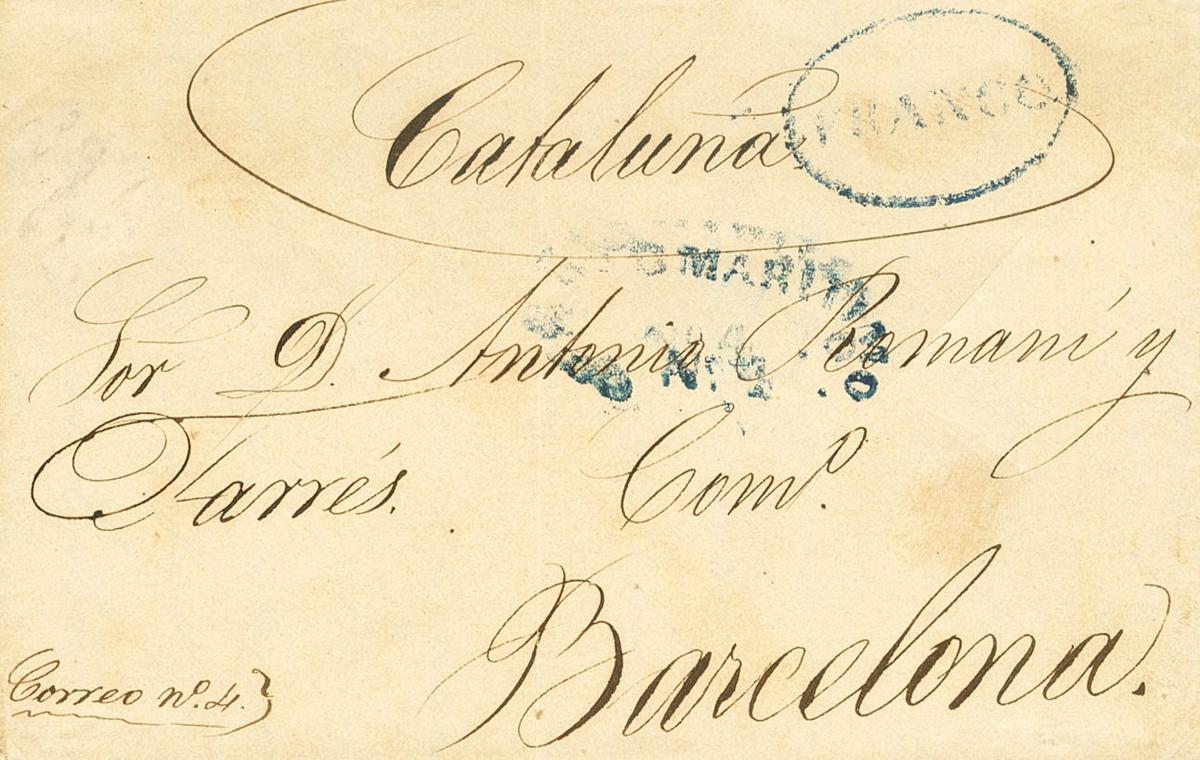 Cataluña
FRANCO
MARIT
Sor D. Antonio Romaní y
Tarrés. Como.
Barcelona.
Correo no. 4.